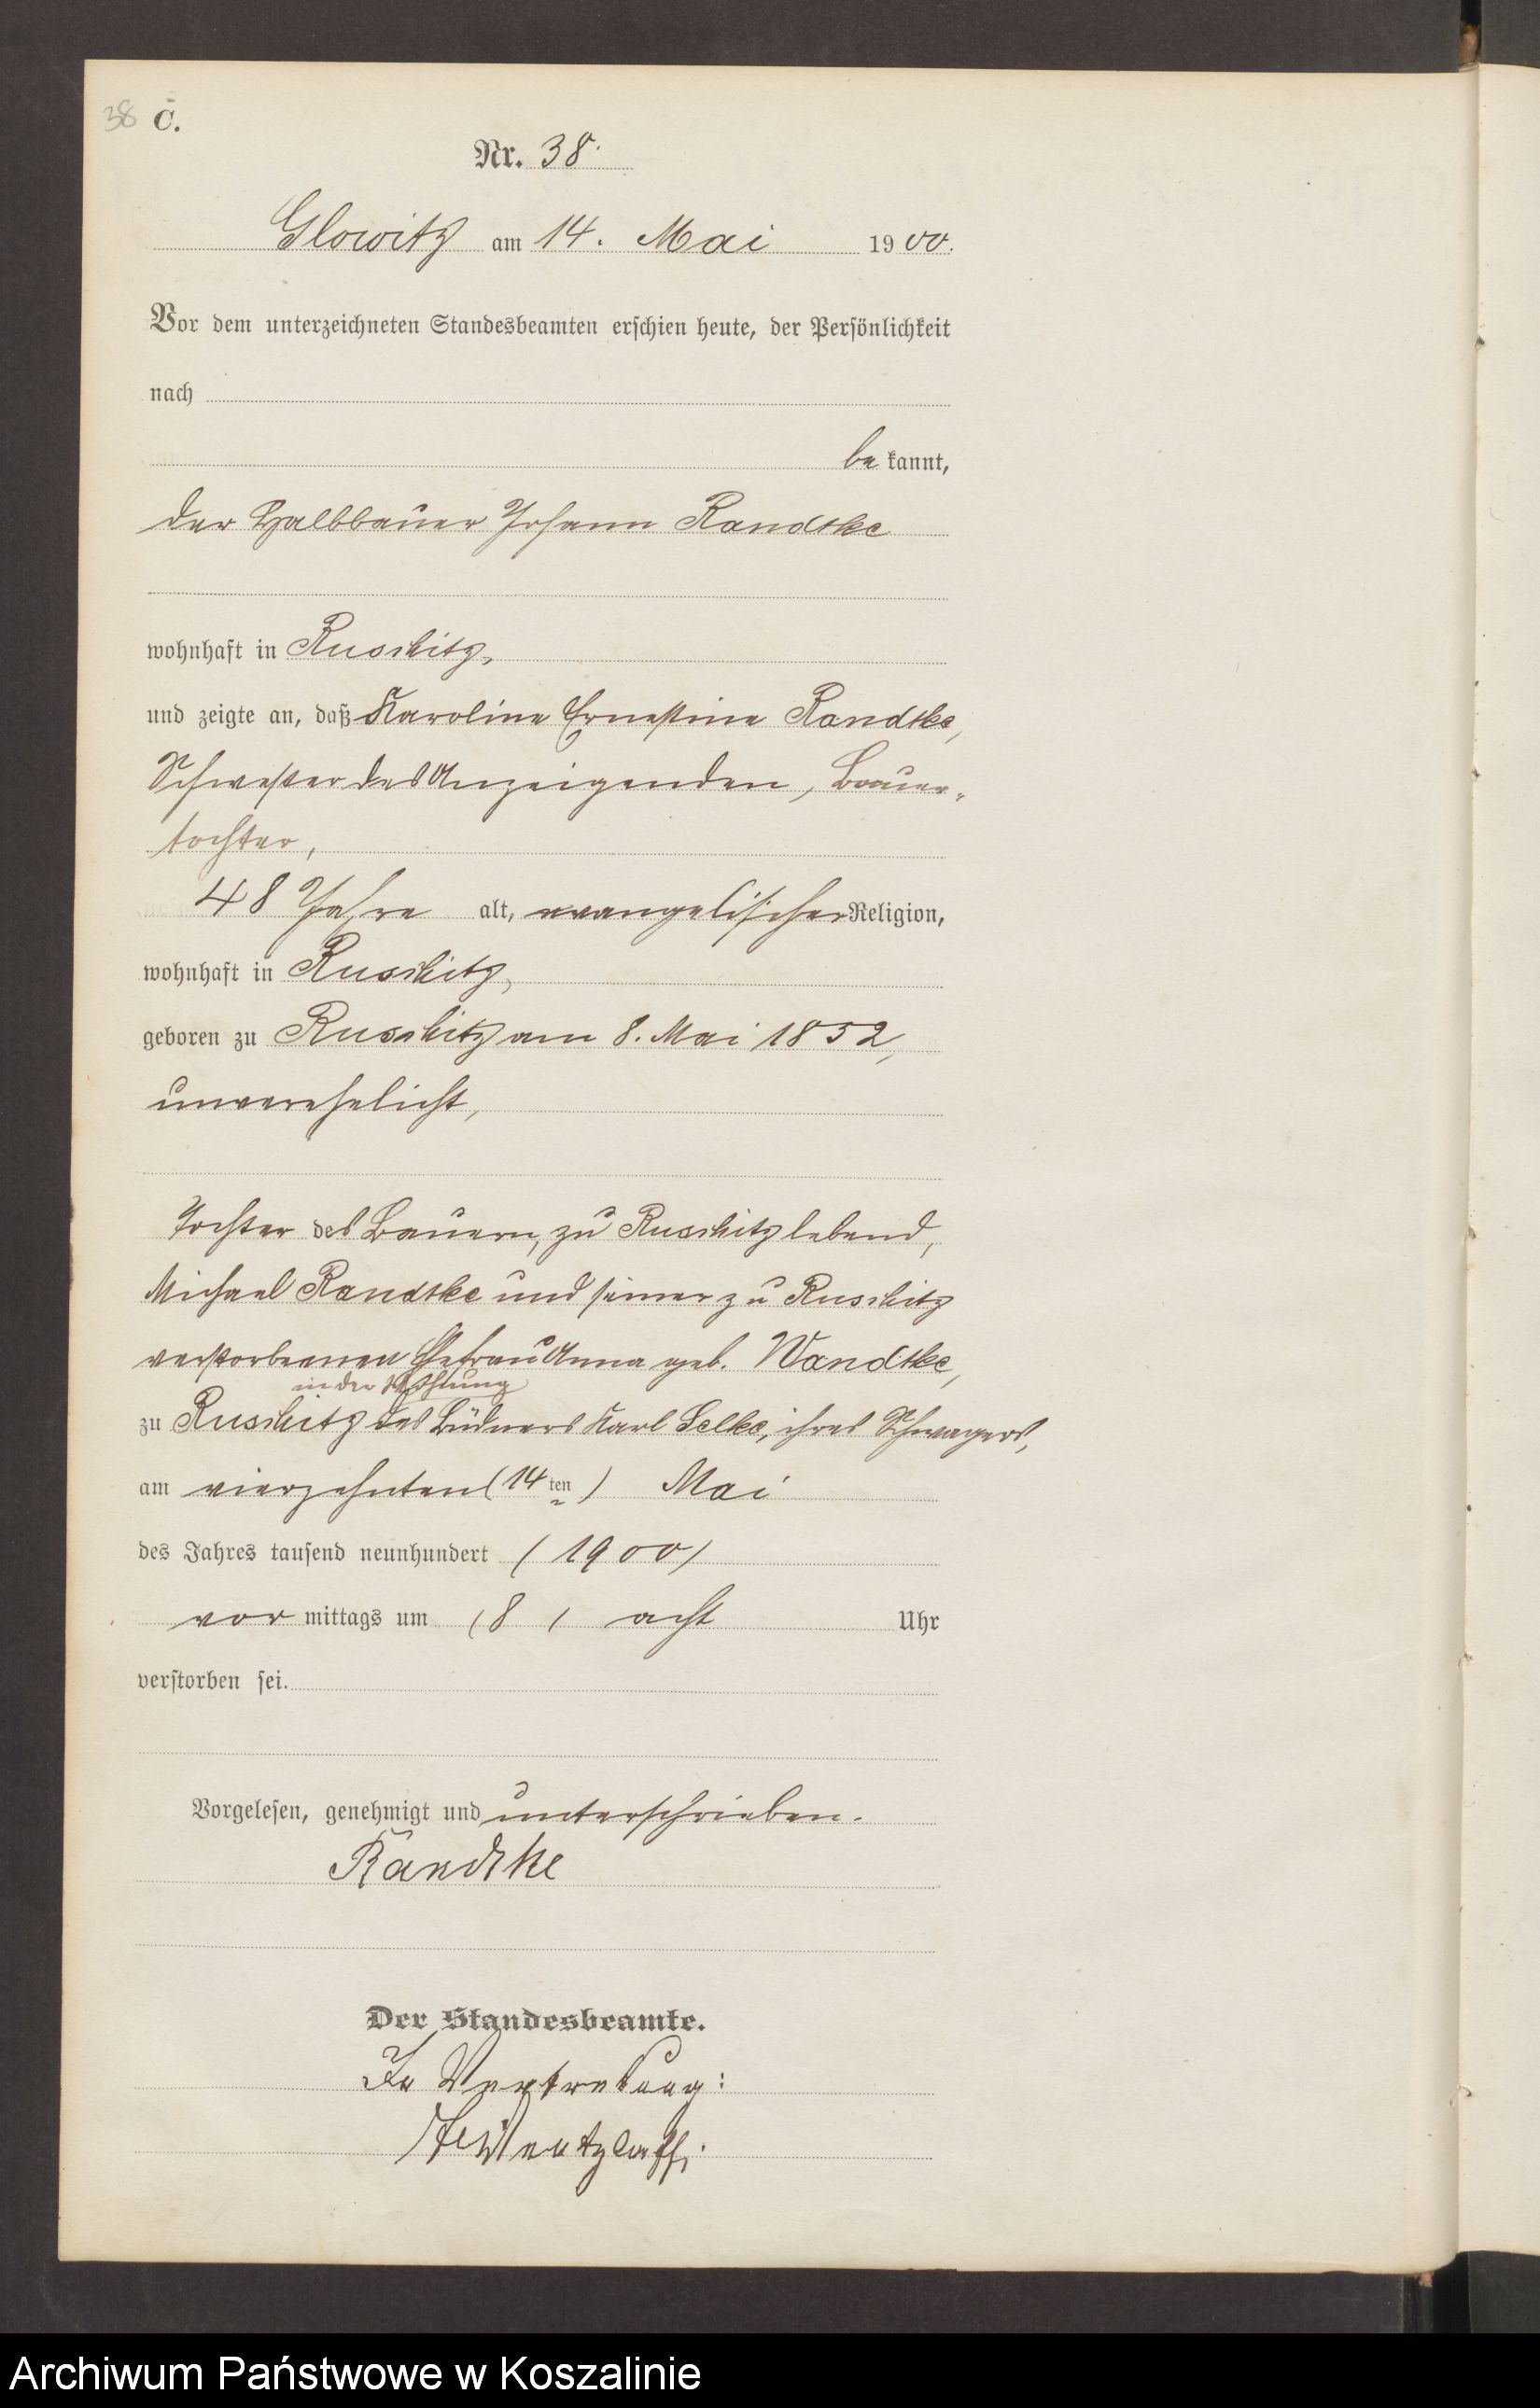 38 C.
Nr. 38.
Glowitz am 14. Mai 1900.
Vor dem unterzeichneten Standesbeamten erschien heute, der Persönlichkeit
nach
be kannt,
der Halbbauer Johann Randtke
wohnhaft in Ruschitz,
und zeigte an, daß Karoline Ernestine Randtke,
Schwester des Anzeigenden, Bauer-
tochter,
48 Jahre alt, evangelischer Religion,
wohnhaft in Ruschitz,
geboren zu Ruschitz am 8. Mai 1852,
unverehelicht,
Tochter des Bauern, zu Ruschitz lebend,
Michael Randtke und seiner zu Ruschitz
verstorbenen Ehefrau Anna geb. Wandtke,
in der Wohnung
zu Ruschitz des Büdners Karl Selke, ihres Schwagers,
am vierzehnten (14ten) Mai
des Jahres tausend neunhundert (1900)
vor mittags um (8) acht Uhr
verstorben sei.
Vorgelesen, genehmigt und unterschrieben.
Randtke
Der Standesbeamte.
In Vertretung:
Wentzlaff.
Archiwum Państwowe w Koszalinie